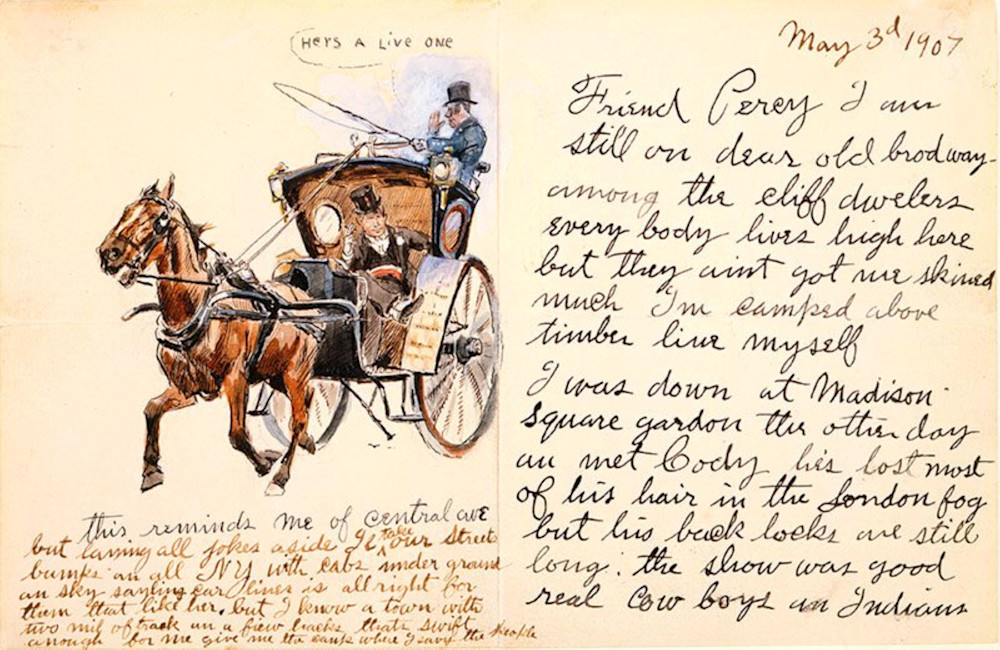 HERS A LIVE ONE
this reminds me of central ave
but laying all jokes aside Il take our streets
bumps an all NY with cabs under ground
an sky car lines is all right for
them that like her, but I know a town with
two mil of track an a fiew hacks thats swift
anough for me give me the camp where I savy the people
May 3d 1907
Friend Percy I am
still on dear old brodway
among the cliff dwelers
every body lives high here
but they aint got me skined
much I'm camped above
timber line myself
I was down at Madison
Square gardon the other day
an met Cody he's lost most
of his hair in the London fog
but his back locks are still
long. the show was good
real cow boys an Indians